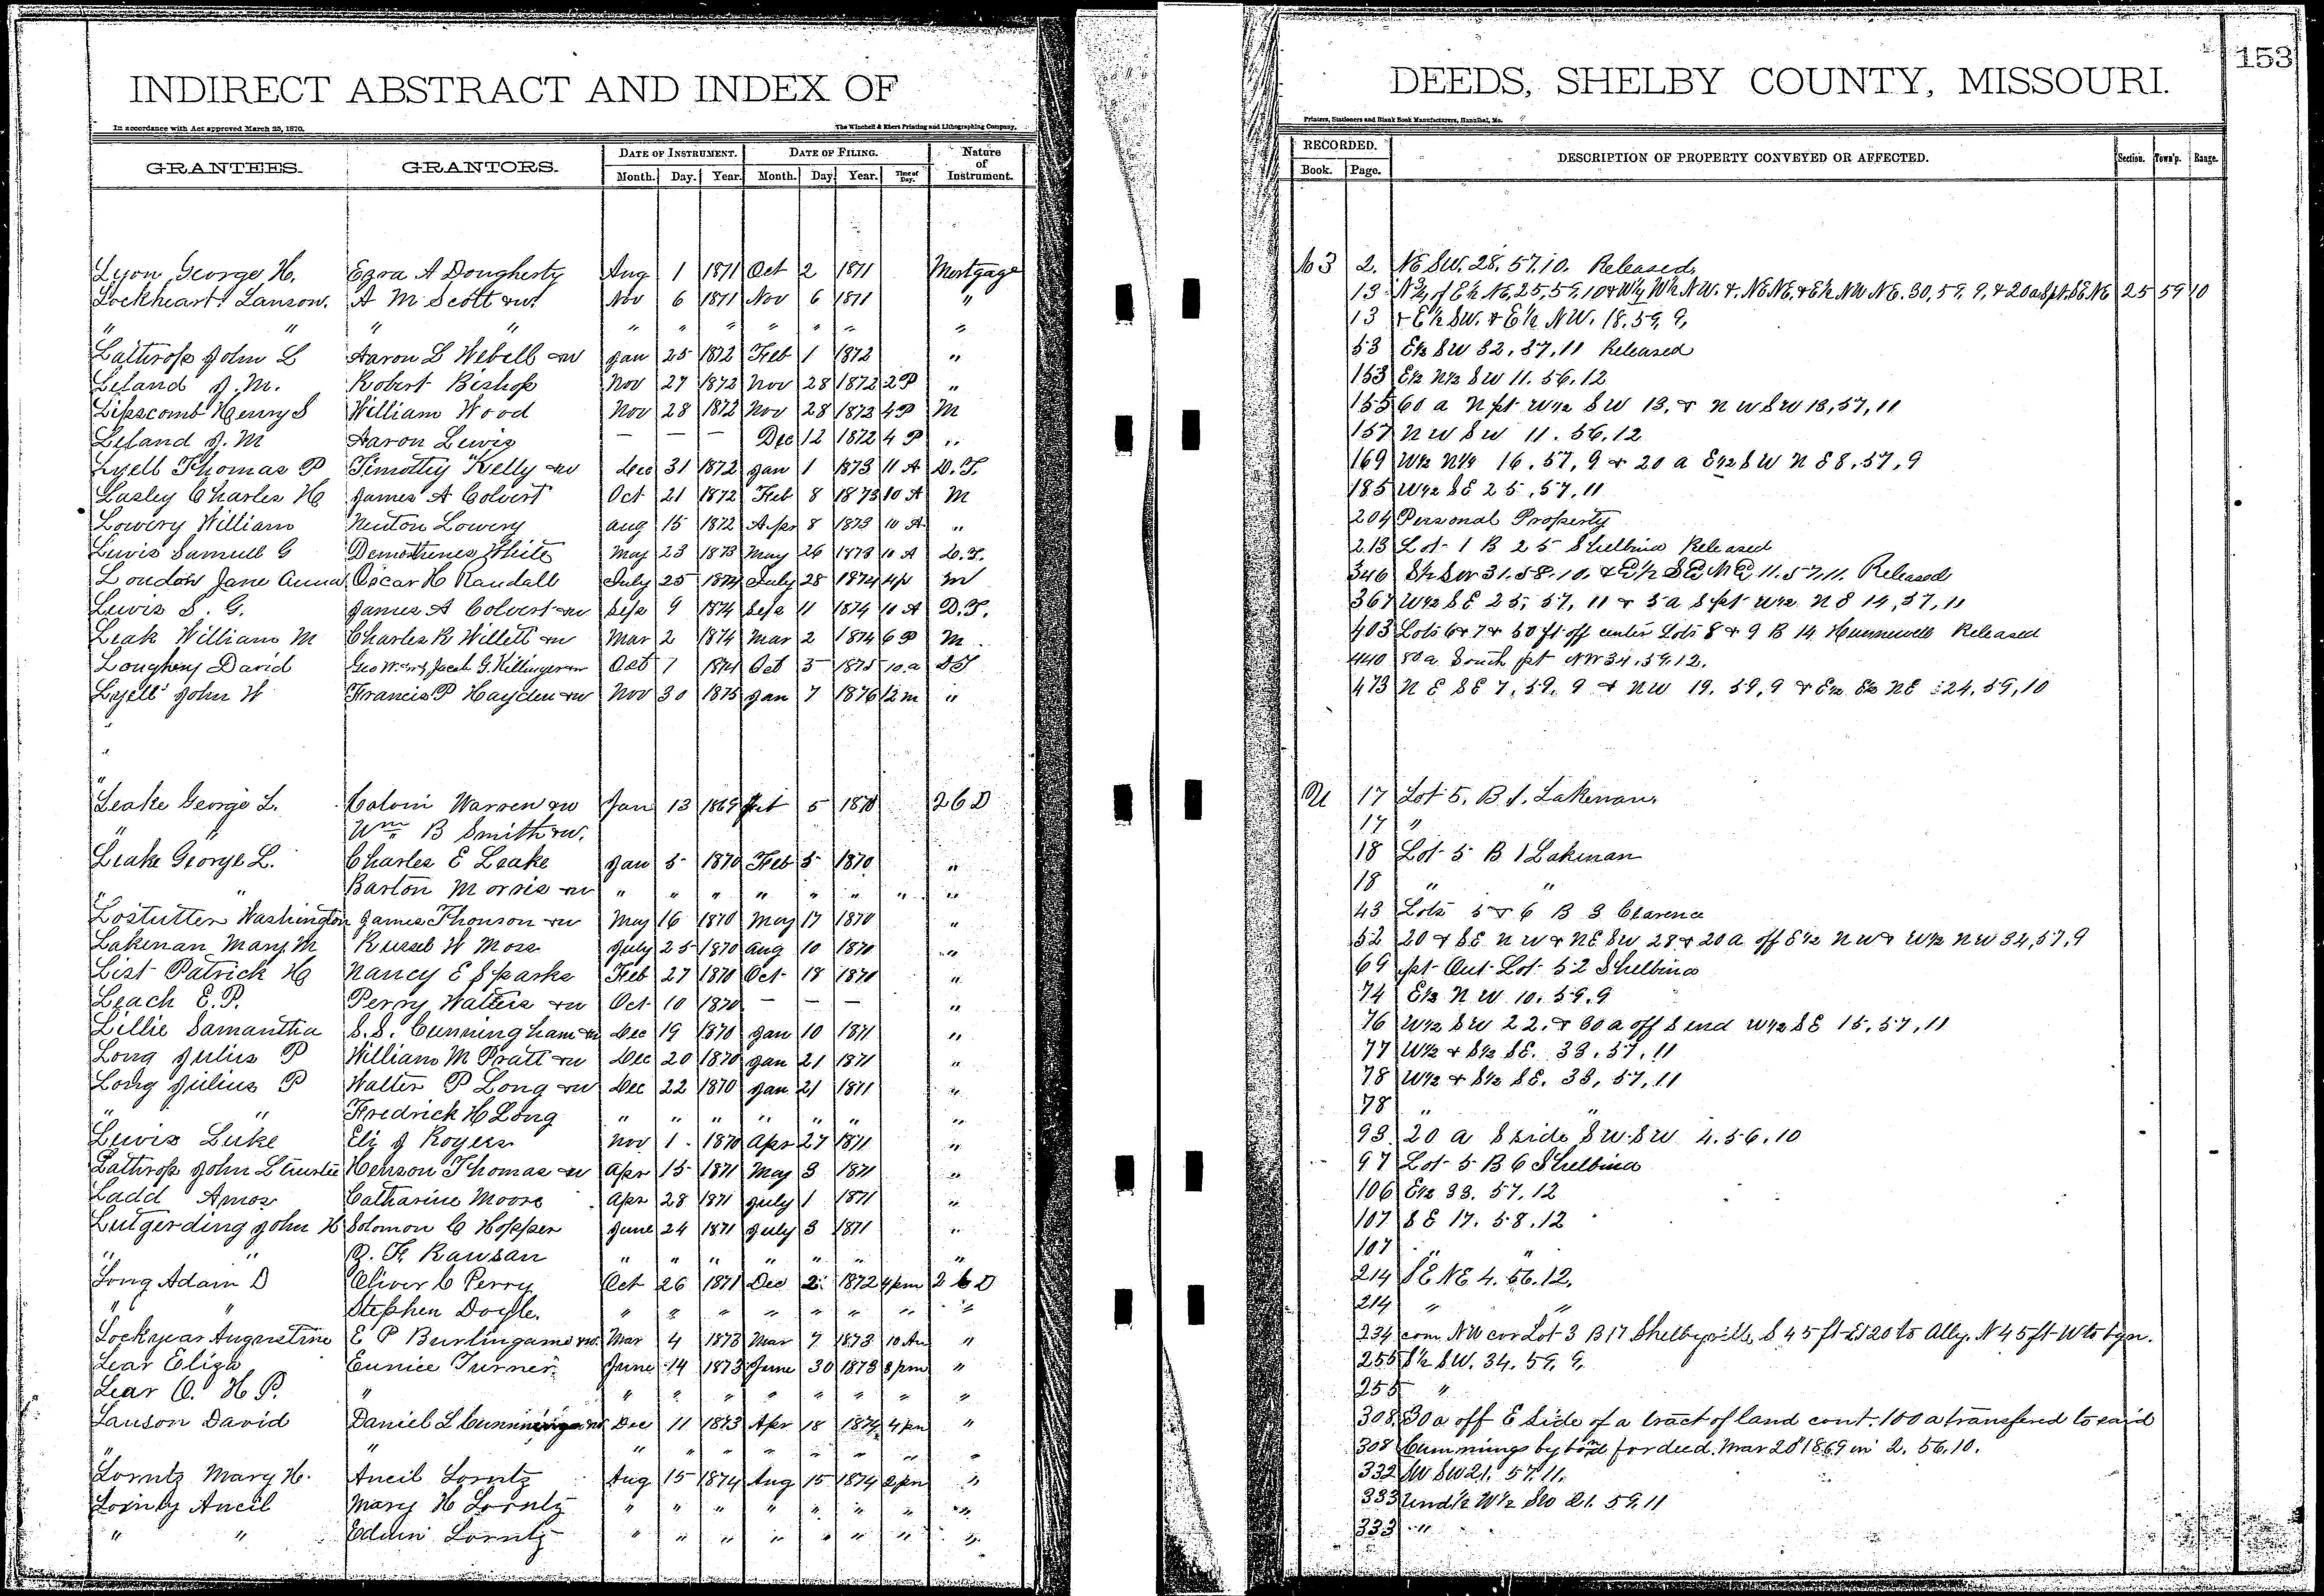 INDIRECT ABSTRACT AND INDEX OF DEEDS, SHELBY COUNTY, MISSOURI. 153
In accordance with Act approved March 23, 1870. The Winchell & Ebert Printing and Lithographing Company, Printers, Stationers and Blank Book Manufacturers, Hannibal, Mo.
GRANTEES. GRANTORS. DATE OF INSTRUMENT. DATE OF FILING. Nature of Instrument. RECORDED. DESCRIPTION OF PROPERTY CONVEYED OR AFFECTED. Section. Town'p. Range.
Month. Day. Year. Month. Day. Year. Time of Day. Book. Page.
Lyon George H. Ezra A Dougherty Aug 1 1871 Oct 2 1871 Mortgage No 3 2. NE SW. 28. 57. 10. Released
Lockheart Lanson. A M Scott &w. Nov 6 1871 Nov 6 1871 " 13 of E½ NE, 25, 59, 10 & W½ NW. & NE NE. & E½ NW NE. 30, 59, 9, & 20a Spt. SE NE 25 59 10
" " " " " " " " " " " 13 & E½ SW. & E½ NW. 18. 59, 9,
Lathrop John L Aaron L Webell &w Jan 25 1872 Feb 1 1872 " 53 E½ SW 32, 57, 11 Released
Leland J. M. Robert Bishop Nov 27 1872 Nov 28 1872 2 P " 153 E½ N½ SW 11. 56. 12
Lipscomb Henry S William Wood Nov 28 1872 Nov 28 1872 4 P M 155 60 a N pt W½ SW 13, & NW SW 13, 57, 11
Leland J. M Aaron Lewis — — — Dec 12 1872 4 P " 157 NW SW 11. 56. 12
Lyell Thomas P Timothy Kelly &w Dec 31 1872 Jan 1 1873 11 A D. T. 169 W½ 16. 57, 9 & 20 a E½ SW NE 8, 57, 9
Lasley Charles H James A Colvert Oct 21 1872 Feb 8 1873 10 A M 185 W½ SE 25, 57, 11
Lowery William Newton Lowery Aug 15 1872 Apr 8 1873 10 A " 204 Personal Property
Lewis Samuel G Demosthenes White May 23 1873 May 26 1873 10 A D. T. 213 Lot 1 B 25 Shelbina Released
London Jane Anna Oscar H Randall July 25 1874 July 28 1874 4p M 346 S½ SW 31. 58. 10. & E½ SE NE 11. 57. 11. Released
Lewis S. G. James A Colvert &w Sep 9 1874 Sep 11 1874 10 A D. T. 367 W½ SE 25, 57, 11 & 5 a S pt W½ NE 14, 57, 11
Leak William M Charles R Willett &w Mar 2 1874 Mar 2 1874 6 P M 403 Lots 6 & 7 & 50 ft off center Lots 8 & 9 B 14 Hunnewell Released
Loughery David Geo W. &w Jacob G. Killinger &w Oct 7 1874 Oct 5 1875 10. a DT 440 80 a South pt NW 34, 59, 12.
Lyell John W Francis P Hayden &w Nov 30 1875 Jan 7 1876 12 m " 473 NE SE 7, 59, 9 & NW 19. 59, 9 & E½ E½ NE 24, 59, 10
Leake George L. Calvin Warren &w Jan 13 1869 Feb 5 1870 2 6 D 17 Lot 5. B. 1. Lakenan.
" " Wm B Smith &w. 17 "
Leake George L. Charles E Leake Jan 5 1870 Feb 5 1870 " 18 Lot 5 B 1 Lakenan
" " Barton Morris &w " " " " " " " " 18 " "
Lostutter Washington James Thonson &w May 16 1870 May 17 1870 " 43 Lots 5 & 6 B 3 Clarence
Lakenan Mary M Russel W Moss July 25 1870 Aug 10 1870 " 52 20 & SE NW & NE SW 28 & 20 a off E½ NW & W½ NW 34, 57, 9
List Patrick H Nancy E Sparks Feb 27 1870 Oct 18 1870 " 69 pt Out Lot 52 Shelbina
Leach E. P. Perry Walters &w Oct 10 1870 — — — " 74 E½ NW 10. 59. 9
Lillie Samantha S. S. Cunningham &w Dec 19 1870 Jan 10 1871 " 76 W½ SW 22. & 60 a off S end W½ SE 15, 57, 11
Long Julius P William M Pratt &w Dec 20 1870 Jan 21 1871 " 77 W½ & S½ SE. 33, 57, 11
Long Julius P Walter P Long &w Dec 22 1870 Jan 21 1871 " 78 W½ & S½ SE. 33, 57, 11
" " Fredrick H Long " " " " " " " 78 " "
Lewis Luke Eli J Royers Nov 1 1870 Apr 27 1871 " 93 20 a S side SW SW 4. 56, 10
Lathrop John L trustee Henson Thomas &w Apr 15 1871 May 3 1871 " 97 Lot 5 B 6 Shelbina
Ladd Amos Catharine Moore Apr 28 1871 July 1 1871 " 106 E½ 33. 57. 12
Lutgerding John H Solomon C Hopper June 24 1871 July 3 1871 " 107 SE 17. 58. 12
" " F. Rawsan " " " " " " " 107 " "
Long Adam D Oliver C Perry Oct 26 1871 Dec 2 1872 4 pm 2 6 D 214 SE NE 4. 56. 12.
" " Stephen Doyle. " " " " " " " " 214 " "
Lockyear Augustine E P Burlingame &w. Mar 4 1873 Mar 7 1873 10 Am " 234 com. NW cor Lot 3 B 17 Shelbyville, S 45 ft E 120 to Ally. N 45 ft W to bgn.
Lear Eliza Eunice Turner June 14 1873 June 30 1873 3 pm " 255 S½ SW. 34. 59. 9.
Lear O. H. P. " " " " " " " " " 255 "
Lauson David Daniel L Dec 11 1873 Apr 18 1874 4 pm " 308 30 a off E side of a tract of land cont. 100 a transfered to said
" " " " " " " " " 308 Cummings by bond for deed. Mar 20 1869 in 2. 56. 10.
Lorntz Mary H. Ancil Lorntz Aug 15 1874 Aug 15 1874 2 pm " 332 SW SW 21. 57. 11.
Lorntz Ancil Mary H Lorntz " " " " " " " " 333 Und ½ W½ SW 21. 59. 11
" " Edwin Lorntz " " " " " " " " 333 "